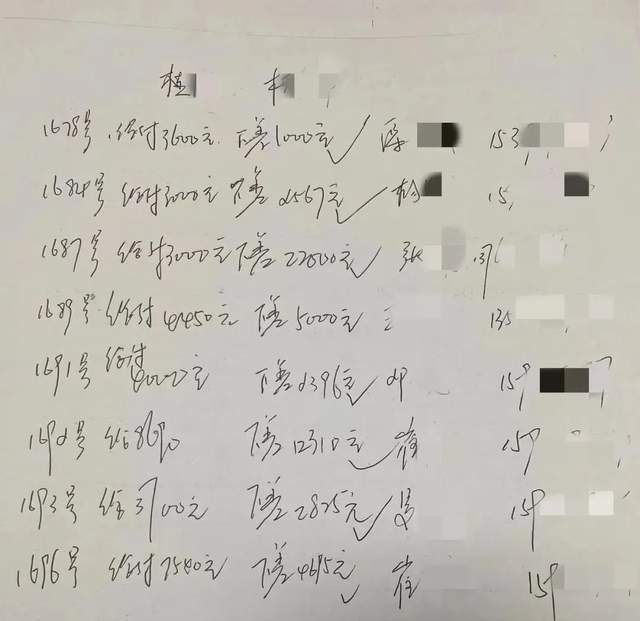 1678号 给付3600元 下差1000元
1684号 给付3000元 下差2567元 杨 15
1687号 给付3000元 下差22000元 张 137
1689号 给付4450元 下差5000元 135
1691号 给付4000元 下差2396元 159
1692号 给8690 下差12310元 崔 159
1693号 给3700元 下差2825元 159
1696号 给付7540元 下差4695元 崔 159